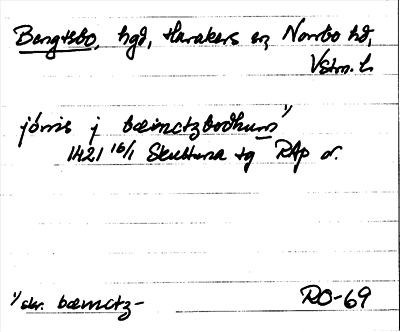 Bengtsbo, hgd, Harakers sn, Norrbo hd,
Vstm. l.
jönis j bæinctzbodhum 1/
1421 16/1 Skultuna tg RAp or.
1/ skr. bæmctz-
RO-69